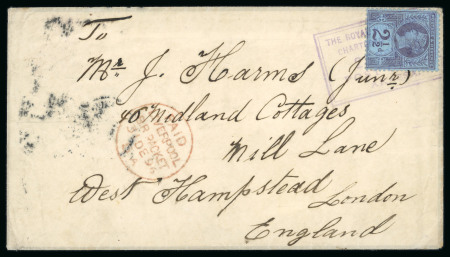 To
Mr. J. Harms (Junr)
40 Midland Cottages
Mill Lane
West Hampstead London
England
THE ROYAL
CHARTER
2½
PAID
LIVERPOOL
BR PACKET